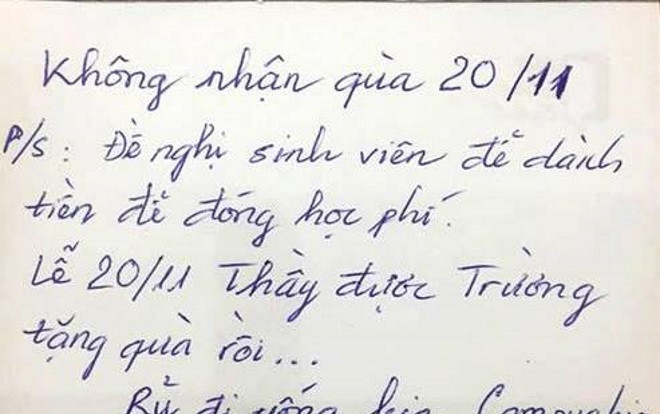 Không nhận quà 20/11
P/S: Đề nghị sinh viên để dành
tiền để đóng học phí.
Lễ 20/11 Thầy được Trường
tặng quà rồi...
Rủ đi uống